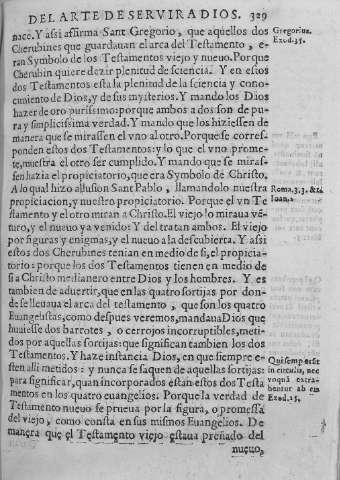 DEL ARTE DE SERVIR A DIOS. 329
nace. Y assi affirma Sant Gregorio, que aquellos dos
Cherubines que guardauan el arca del Testamento, e-
ran Symbolo de los Testamentos viejo y nueuo. Porque
Cherubin quiere dezir plenitud de sciencia. Y en estos
dos Testamentos esta la plenitud de la sciencia y cono-
cimiento de Dios, y de sus mysterios. Y mando los Dios
hazer de oro purissimo: porque ambos a dos son de pu-
ra y simplicissima verdad. Y mando que los hiziessen de
manera que se mirassen el vno al otro. Porque se corres-
ponden estos dos Testamentos: y lo que el vno prome-
te, muestra el otro ser cumplido. Y mando que se miras-
sen hazia el propiciatorio, que era Symbolo de Christo.
A lo qual hizo allusion Sant Pablo, llamandolo nuestra
propiciacion, y nuestro propiciatorio. Porque el vn Te
stamento y el otro miran a Christo. El viejo lo miraua vē-
turo, y el nueuo ya venido: Y del tratan ambos. El viejo
por figuras y enigmas, y el nueuo a la descubierta. Y assi
estos dos Cherubines tenian en medio de si, el propicia-
torio: porque los dos Testamentos tienen en medio de
si a Christo medianero entre Dios y los hombres. Y es
tambien de aduertir, que en las quatro sortijas por don-
de se lleuaua el arca del testamento, que son los quatro
Euangelistas, como despues veremos, mandaua Dios que
huuiesse dos barrotes, o cerrojos incorruptibles, meti-
dos por aquellas sortijas: que significan tambien los dos
Testamentos. Y haze instancia Dios, en que siempre e-
sten alli metidos: y nunca se saquen de aquellas sortijas:
para significar, quan incorporados estan estos dos Testa
mentos en los quatro euangelios. Porque la verdad de
Testamento nueuo se prueua por la figura, o promessa
del viejo, como consta en sus mismos Euangelios. De
manera que el Testamento viejo estaua preñado del
nueuo,
Gregorius.
Exod. 35.
Roma. 3. 3. &
Ioan.
Qui semper sūt
in circulis, nec
vnquā extra-
hentur ab eis
Exod. 25.